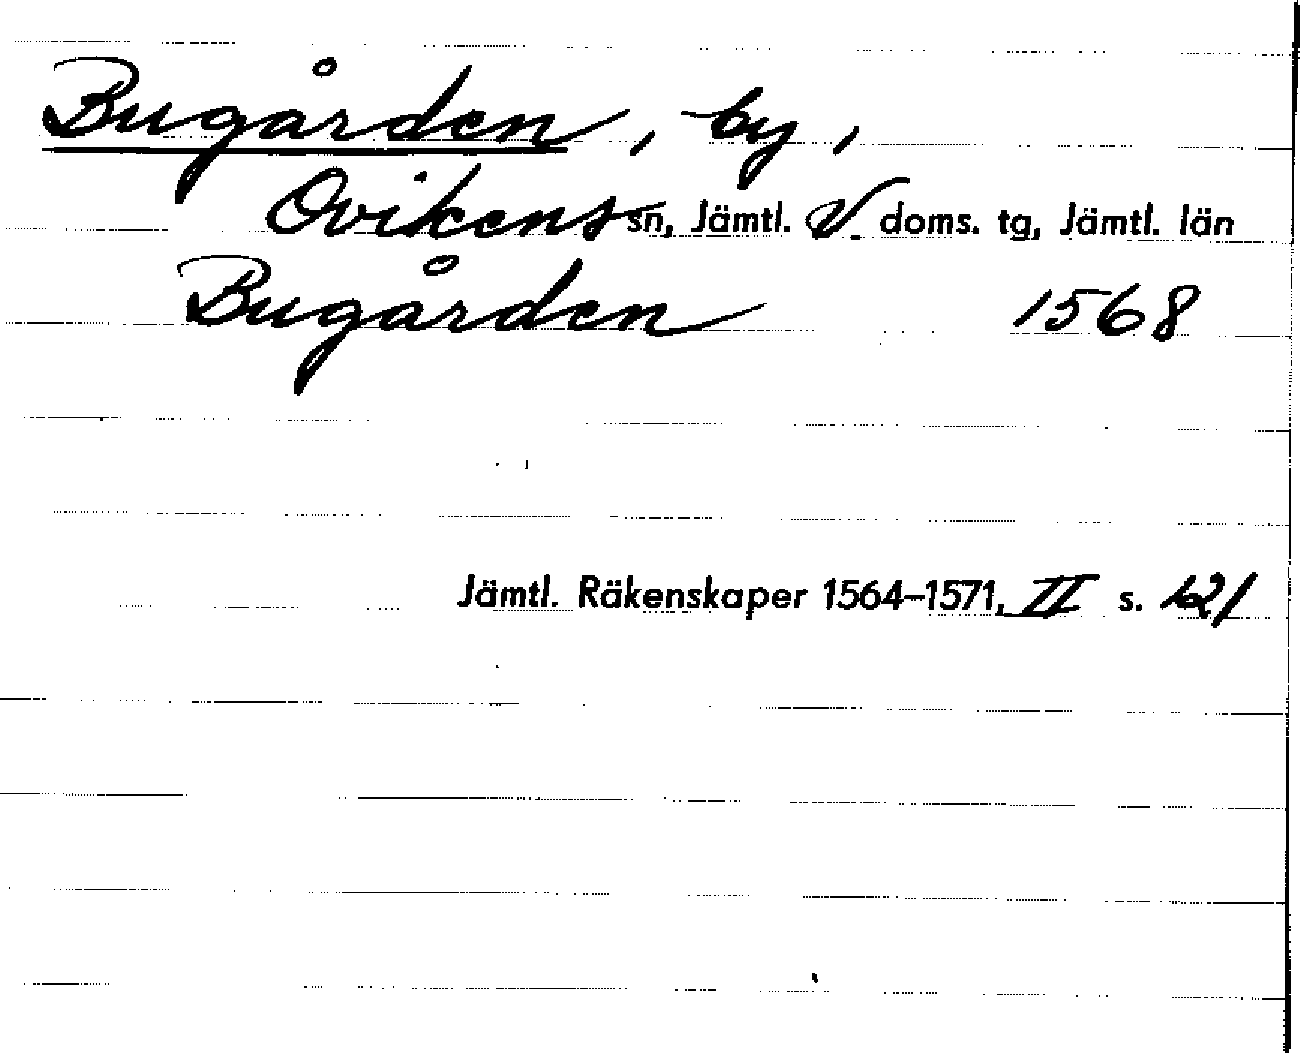 Bugården, by,
Ovikens sn, Jämtl. V. doms. tg, Jämtl. län
Bugården 1568
Jämtl. Räkenskaper 1564–1571, II s. 121